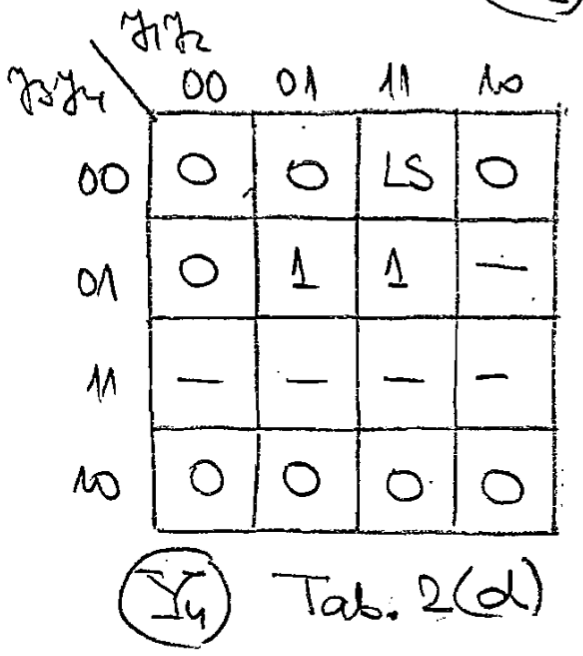 y1y2
y3y4 00 01 11 10
00 0 0 LS 0
01 0 1 1 —
11 — — — —
10 0 0 0 0
Y4 Tab. 2(d)